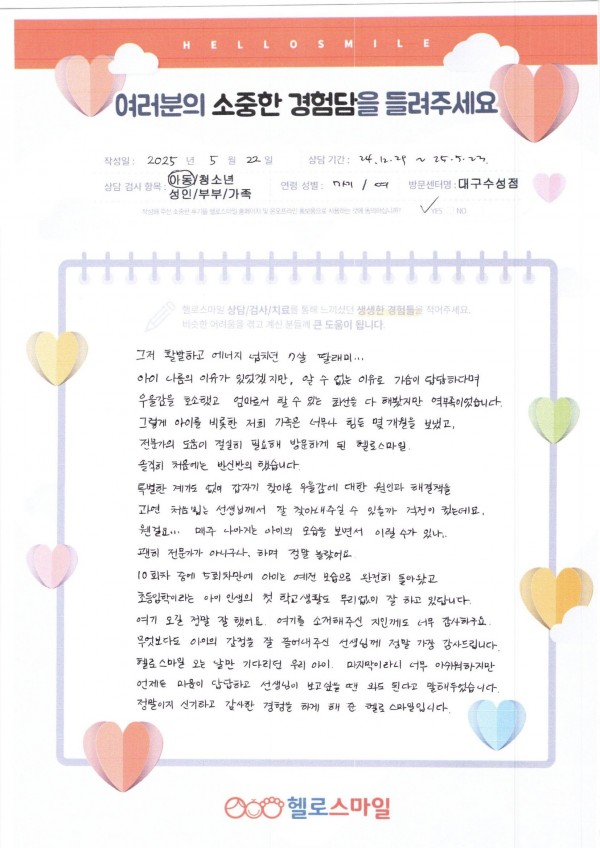 HELLOSMILE
여러분의 소중한 경험담을 들려주세요
작성일 : 2025 년 5 월 22 일 상담 기간 : 24.12.29 ~ 25.5.23.
상담 검사 항목 : 아동/청소년 성인/부부/가족 연령 성별 : 7세 / 여 방문센터명 : 대구수성점
작성해 주신 소중한 후기를 헬로스마일 홈페이지 및 온오프라인 홍보용으로 사용하는 것에 동의하십니까? YES NO
헬로스마일 상담/검사/치료를 통해 느끼셨던 생생한 경험들을 적어주세요.
비슷한 어려움을 겪고 계신 분들께 큰 도움이 됩니다.
그저 활발하고 에너지 넘치던 7살 딸래미...
아이 나름의 이유가 있었겠지만, 알 수 없는 이유로 가슴이 답답하다며
우울감을 호소했고 엄마로서 할 수 있는 최선을 다 해봤지만 역부족이었습니다.
그렇게 아이를 비롯한 저희 가족은 너무나 힘든 몇 개월을 보냈고,
전문가의 도움이 절실히 필요해 방문하게 된 헬로스마일.
솔직히 처음에는 반신반의 했습니다.
특별한 계기도 없이 갑자기 찾아온 우울감에 대한 원인과 해결책을
과연 처음뵙는 선생님께서 잘 찾아내주실 수 있을까 걱정이 컸는데요.
웬걸요... 매주 나아지는 아이의 모습을 보면서 이럴 수가 있나..
괜히 전문가가 아니구나.. 하며 정말 놀랐어요.
10회차 중에 5회차만에 아이는 예전 모습으로 완전히 돌아왔고
초등입학이라는 아이 인생의 첫 학교생활도 무리없이 잘 하고 있답니다.
여기 오길 정말 잘 했어요. 여기를 소개해주신 지인께도 너무 감사하구요.
무엇보다도 아이의 감정을 잘 끌어내주신 선생님께 정말 가장 감사드립니다.
헬로스마일 오는 날만 기다리던 우리 아이. 마지막이라니 너무 아쉬워하지만
언제든 마음이 답답하고 선생님이 보고싶을 땐 와도 된다고 말해두었습니다.
정말이지 신기하고 감사한 경험을 하게 해 준 헬로스마일입니다.
헬로스마일